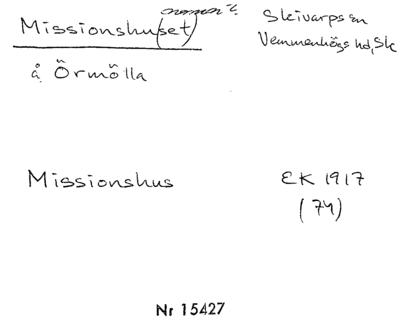 namnen?
Missionshu(set)
Skivarps sn
Vemmenhögs hd, Sk
å Örmölla
Missionshus
EK 1917
(74)
Nr 15427